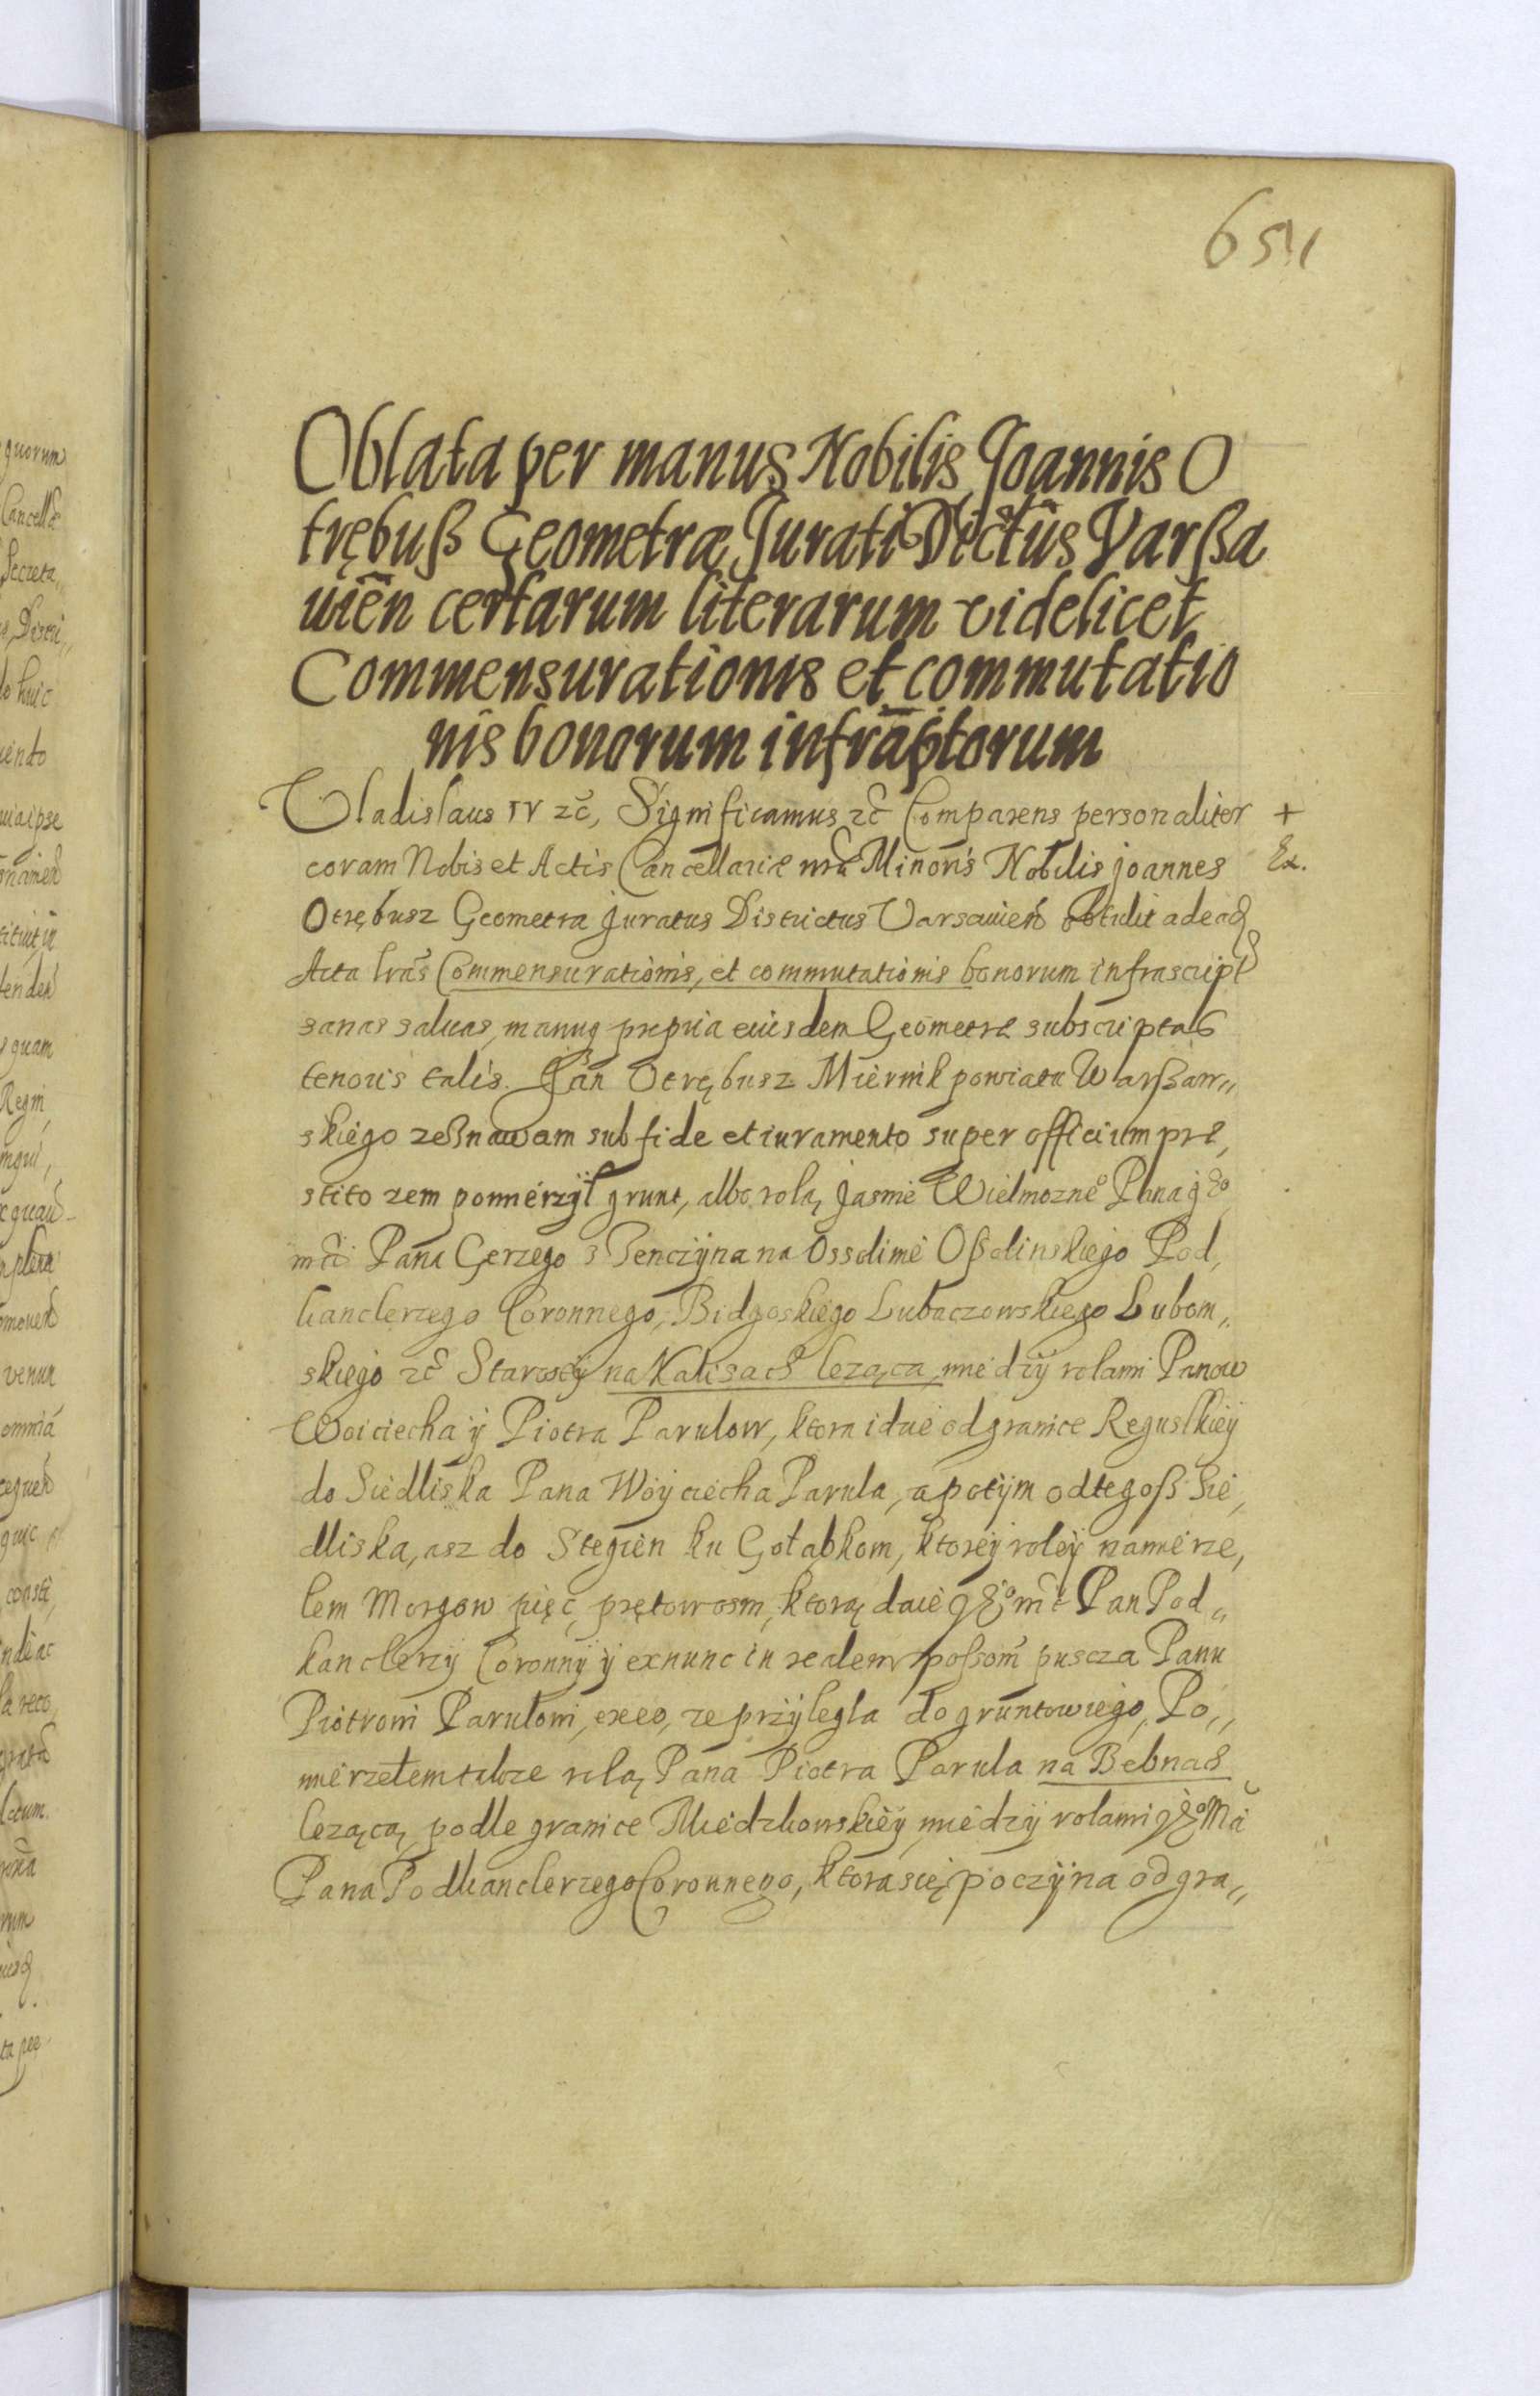 6511
Oblata per manus Nobilis Joannis O
trębuß Geometræ Jurati Dictus Varßa
uien̄ certarum literarum videlicet
Commensurationis et commutatio
nis bonorum infrāptorum
Vladislaus IV zc̃, Significamus zc̃ Comparens personaliter +
coram Nobis et Actis Cancellariæ Minoris Nobilis joannes Ex.
Otrębusz Geometra Juratus Districtus Varsauień obtulit ad eadē
Acta lrãs Commensurationis, et commutationis bonorum infrascript
sanas saluas, manuq̨ propria eiusdem Geometræ subscriptas
tenoris talis. Jan Otrębusz Miernik powiatu Warßaw„
skiego zeßnawam sub fide et iuramento super officium præ,
stito zem pomierzÿł grunt, albo rolą Jasnie Wielmozne° Pana je°
mći Pana Gerzego s Tenczÿna na Ossolinie Oßolinskiego Pod,
kanclerzego Coronnego, Bidgoskiego Lubaczowskiego Lubom„
skiego zc̃ Starostÿ na Kalisach lezącą, miedzÿ rolami Panow
Woiciecha ÿ Piotra Parulow, ktora idzie od granice Regulskieÿ
do Siedliska Pana Woÿciecha Parula, a potÿm od tegoß Sie,
dliska, asz do Stegien ku Gołąbkom, ktoreÿ roleÿ namierze,
lem Morgow pięć, prętow osm, ktorą daie Je° mć Pan Pod„
kanclerzÿ Coronnÿ ÿ exnunc in realem poßom̃ puscza Panu
Piotrowi Parulowi, ex eo, ze przÿległa do gruntow iego, Po„
mierzełem takze rolą Pana Piotra Parula na Bebnach
lezącą, podle granice Miedzkowskieÿ miedzÿ rolami Je° Mći
Pana Podkanclerzego Coronnego, ktora się poczÿna od gra„